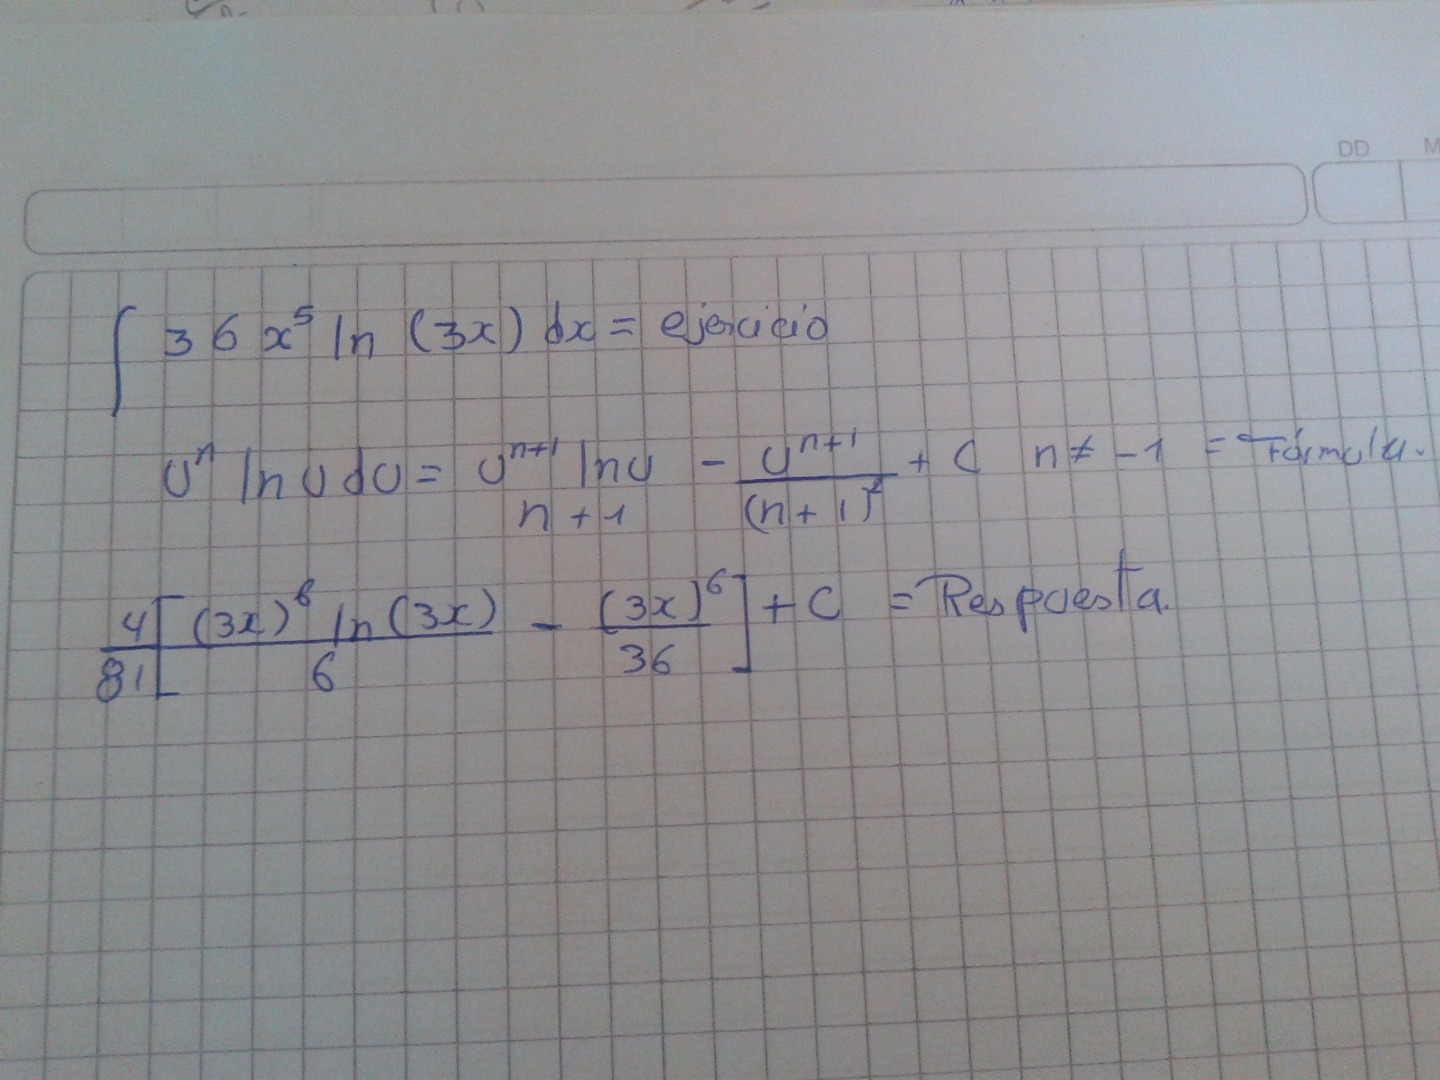 DD
∫ 36 x⁵ ln (3x) dx = ejercicio
uⁿ ln u du = uⁿ⁺¹ ln u / n + 1 - uⁿ⁺¹ / (n + 1)² + C n ≠ -1 = Fórmula.
4/81 [ (3x)⁶ ln (3x) / 6 - (3x)⁶ / 36 ] + C = Respuesta.